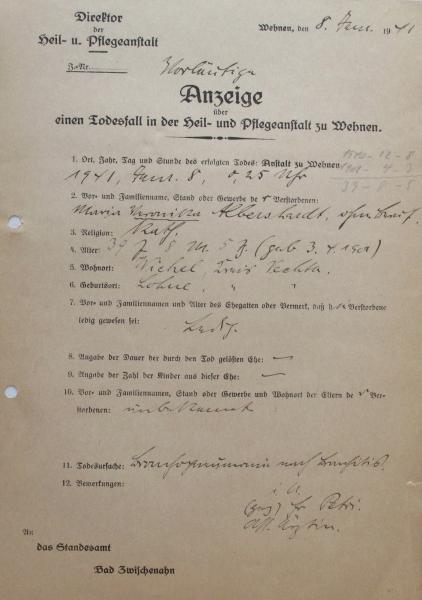 Direktor
der
Heil- u. Pflegeanstalt
Wehnen, den 8. Jan. 1941
J.-Nr.
Vorläufige
Anzeige
über
einen Todesfall in der Heil- und Pflegeanstalt zu Wehnen.
1. Ort, Jahr, Tag und Stunde des erfolgten Todes: Anstalt zu Wehnen
1941, Jan. 8, 0,25 Uhr
1940-12-8
1901-4-3
39-8-5
2. Vor- und Familienname, Stand oder Gewerbe de r Verstorbenen:
Maria Veronika Albershardt, ohne Beruf.
3. Religion: Kath.
4. Alter: 39 J. 8 M. 5 T. (geb 3. 4. 1901)
5. Wohnort: Kreis Vechta
6. Geburtsort: Lohne, " "
7. Vor- und Familiennamen und Alter des Ehegatten oder Vermerk, daß Verstorbene
ledig gewesen sei:
Ledig.
8. Angabe der Dauer der durch den Tod gelösten Ehe: —
9. Angabe der Zahl der Kinder aus dieser Ehe: —
10. Vor- und Familiennamen, Stand oder Gewerbe und Wohnort der Eltern de r Ver-
storbenen: unbekannt
11. Todesursache: Bronchopneumonie nach Bronchitis.
12. Bemerkungen:
i. A.
(gez) Petri.
Ass. Ärztin.
An
das Standesamt
Bad Zwischenahn